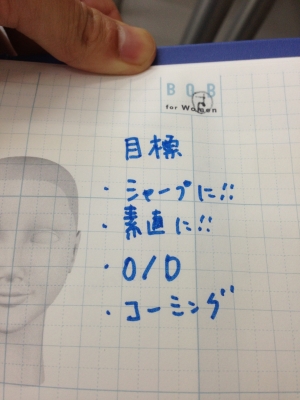 BOB
for Women
目標
・シャープに!!
・素直に!!
・O/D
・コーミング